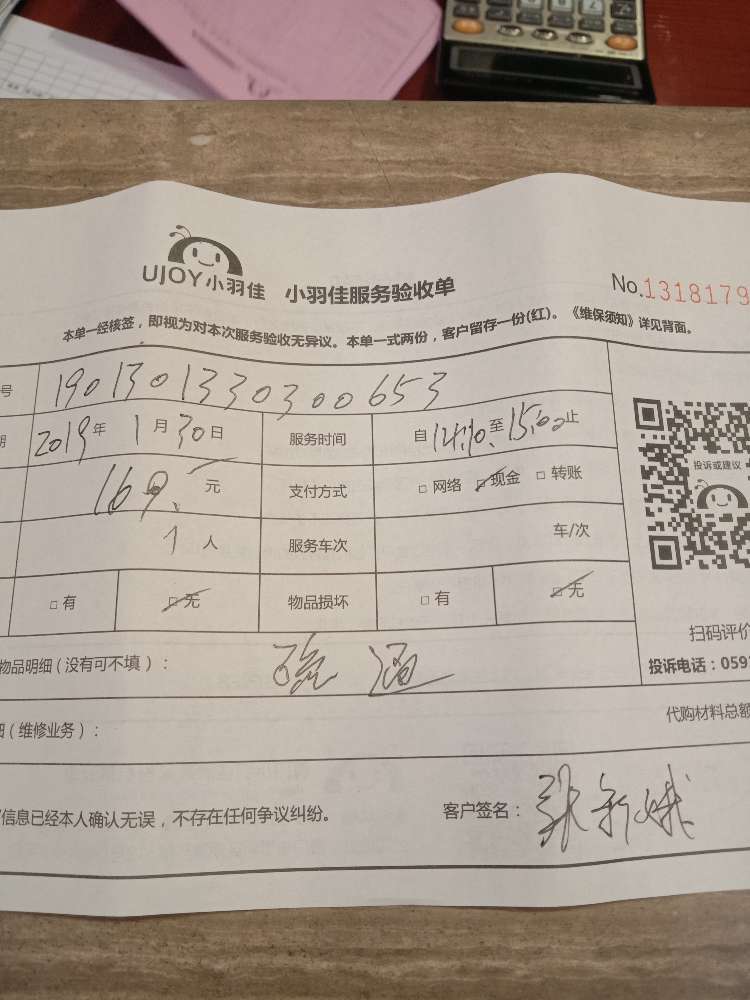 UJOY小羽佳 小羽佳服务验收单
No.1318179
本单一经核签，即视为对本次服务验收无异议。本单一式两份，客户留存一份(红)。《维保须知》详见背面。
号 1901301330300653
期 2019年 1月30日 服务时间 自14:10至15:00止
169.元 支付方式 □网络 □现金 □转账
投诉或建议
1人 服务车次 车/次
□有 □无 物品损坏 □有 □无
扫码评价
物品明细（没有可不填）：
投诉电话：059
细（维修业务）： 代购材料总额
信息已经本人确认无误，不存在任何争议纠纷。 客户签名：张新娥